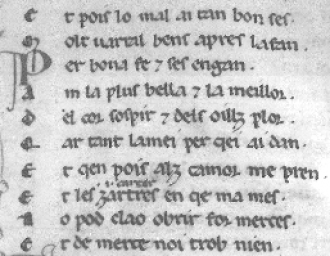 E t pois lo mal ai tan bon ses.
M olt uartal bens apres lafan.
P er bona fe ⁊ ses engan.
A m la plus bella ⁊ la meillor.
D el cor sospir ⁊ dels oillz plor.
Q ar tant lamei per qei ai dan.
E t qen pois alz camor me pren.
E t les zartres en qe ma mes.
N o pod clao obrir for merces.
E t de merce noi trob nien.